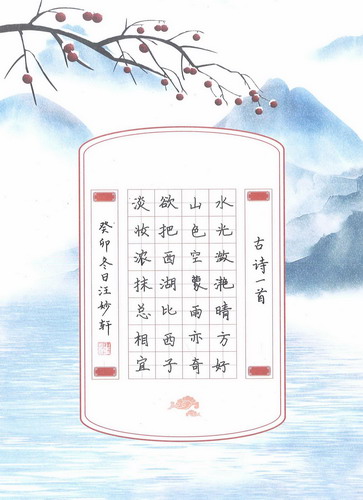 古诗一首
水光潋滟晴方好
山色空蒙雨亦奇
欲把西湖比西子
淡妆浓抹总相宜
癸卯冬日汪妙轩